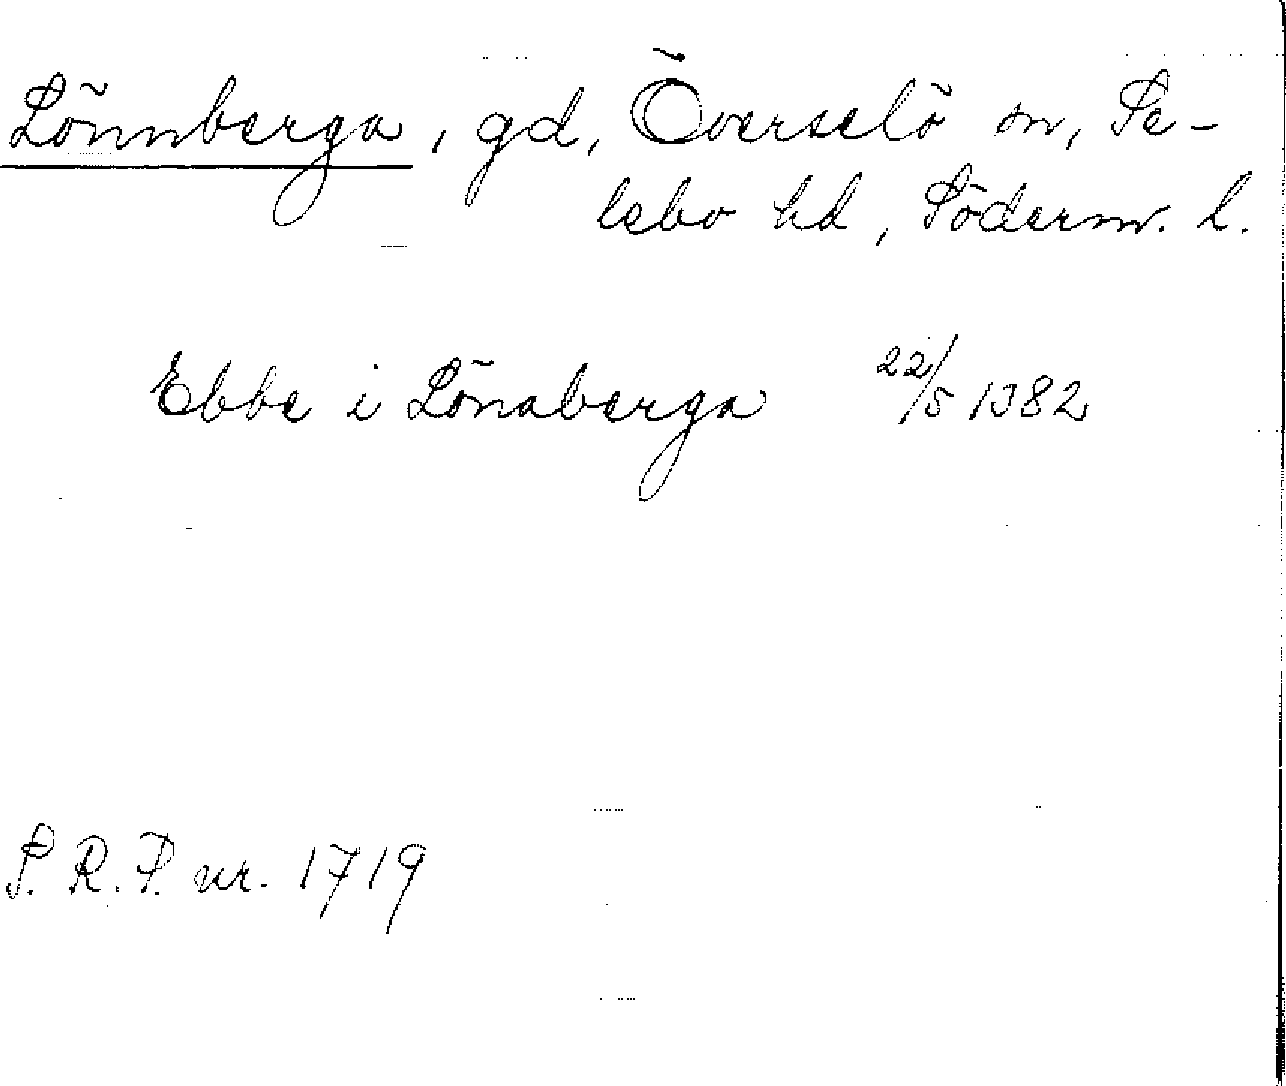 Lönnberga, gd, Överselö sn, Se-
lebo hd, Söderm. l.
Ebbe i Lönaberga 22/5 1382
S. R. P. nr. 1719